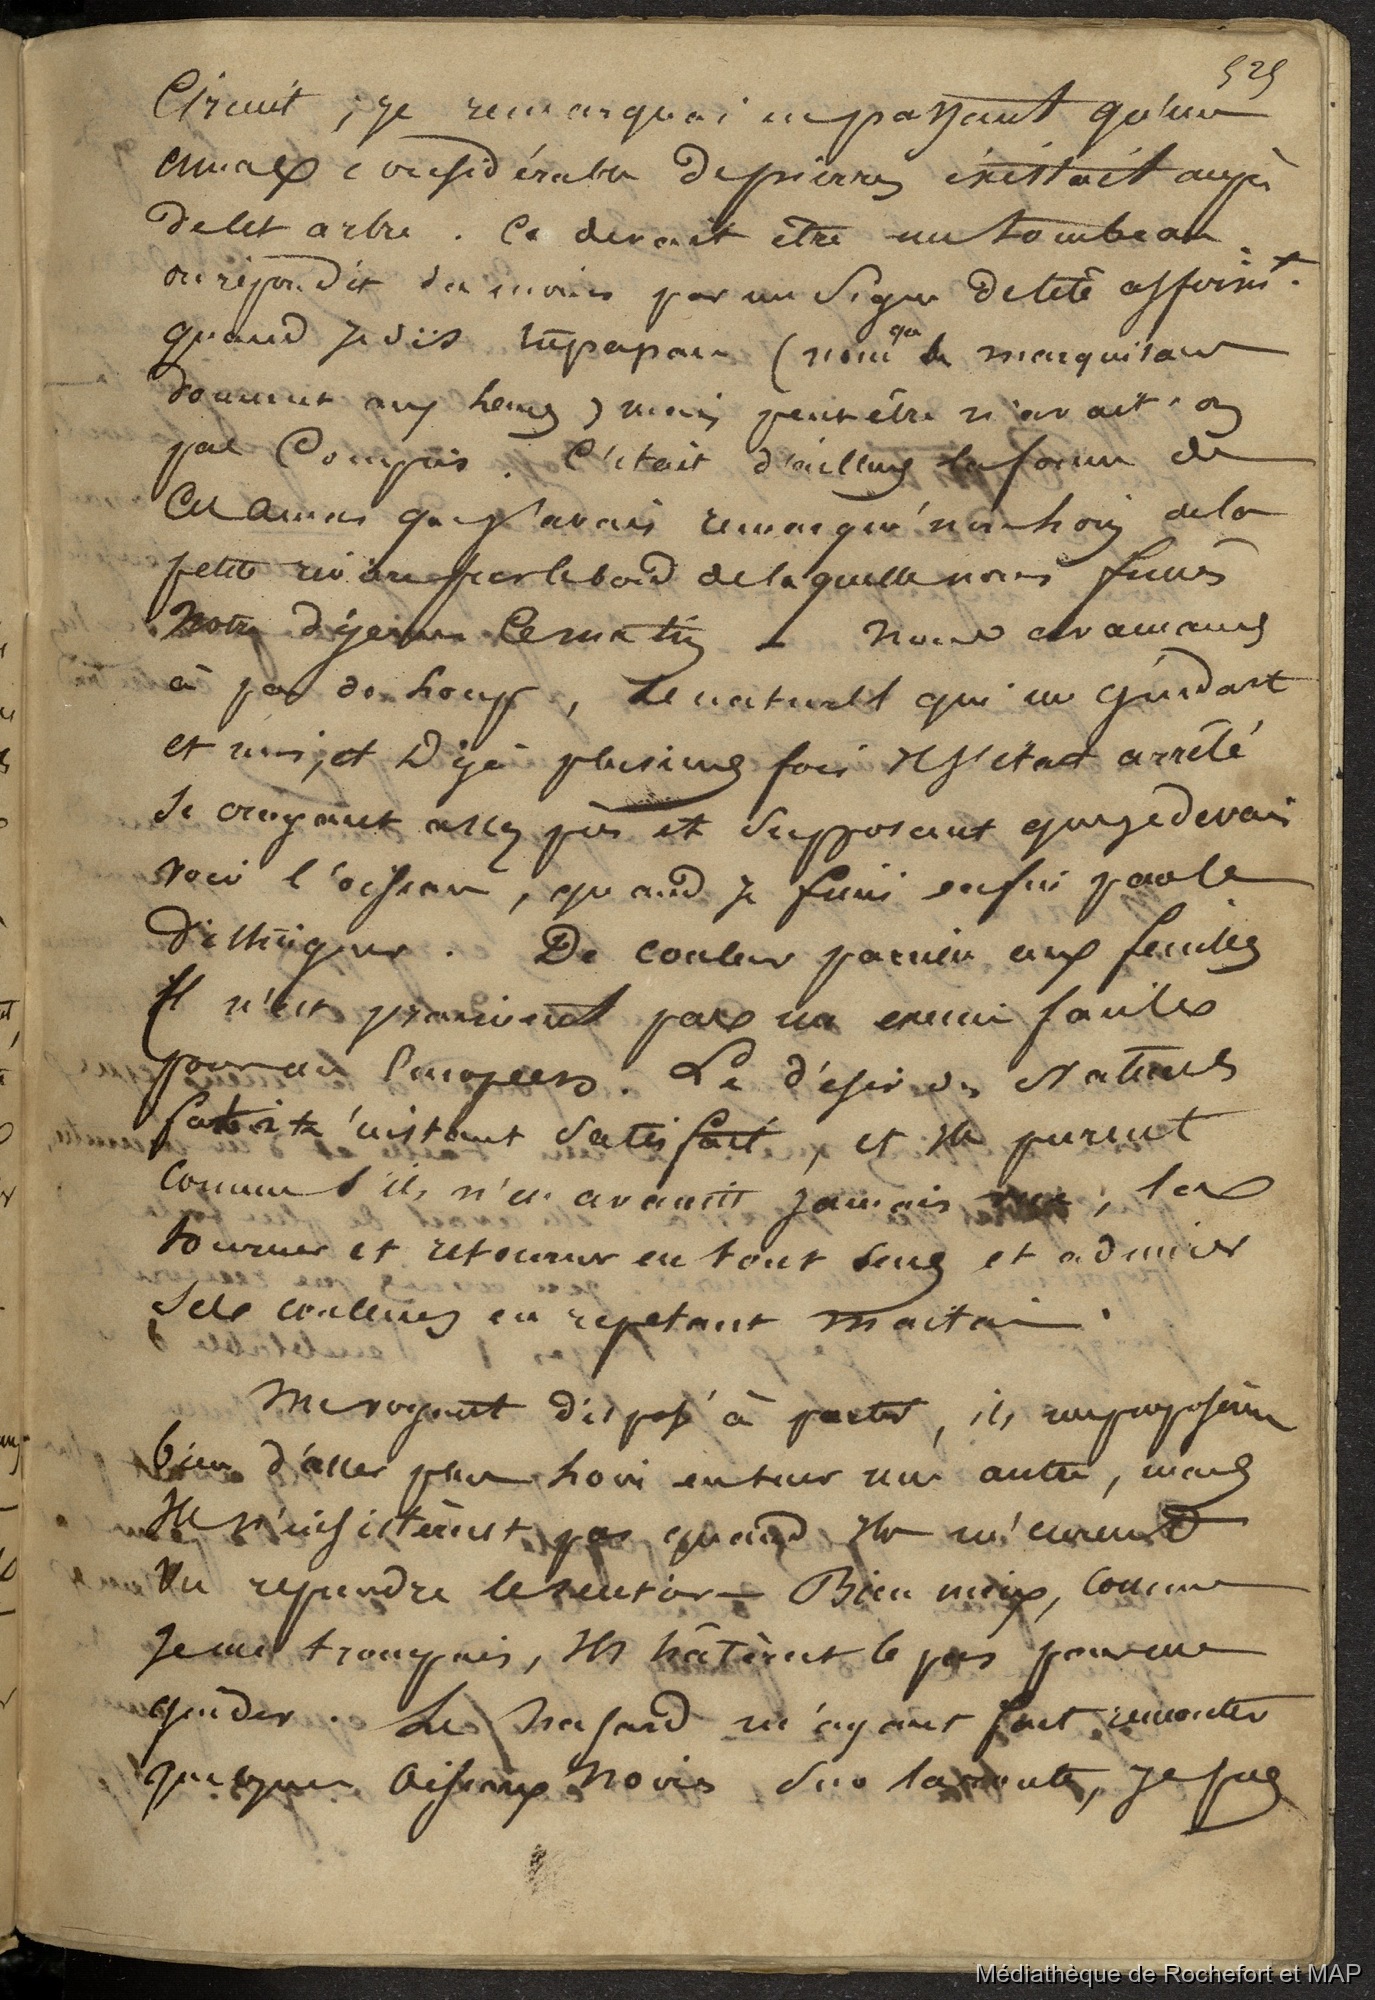 525
Circuit ; je remarquai en passant qu'un
amas considérable de pierres éxistait auprès
de cet arbre . Ce devait être un tombeau
on répondit du moins par un signe de tête affirmt.
quand je dis tūpapau (nom que les marquisans
donnent aux lieux) mais peut être n'avait-on
pas Compris . C'était d'ailleurs la forme de
Cet Amas que j'avais remarqué non loin de la
petite rivière sur le bord de laquelle nous fimes
Notre déjeuner Ce matin — Nous avançames
à pas de loup , Le naturel qui me guidait
et moi, et Déjà plusieurs fois Il s'était arrêté
se croyant assez près et supposant que je devais
voir l'oiseau , quand je finis enfin par le
distinguer . De couleur pareille aux feuilles
Il n'est vraiment pas un ennemi facile
pour un Européen . Le désir des Naturels
fut à l'instant satisfait , et Ils purent
comme s'ils n'en avaient jamais vu , les
tourner et retourner en tout sens et admirer
Ses couleurs en repetant maitai .
Me voyant disposé à partir , ils me proposèrent
bien d'aller plus loin en tuer un autre , mais
Ils n'insistèrent pas quand Ils m'eurent
Vu reprendre le sentier — Bien mieux, comme
Je me trompais , Ils hâtèrent le pas pour me
guider . Le hasard m'ayant fait rencontrer
quelques Oiseaux Noirs sur la route , je fus
Médiathèque de Rochefort et MAP